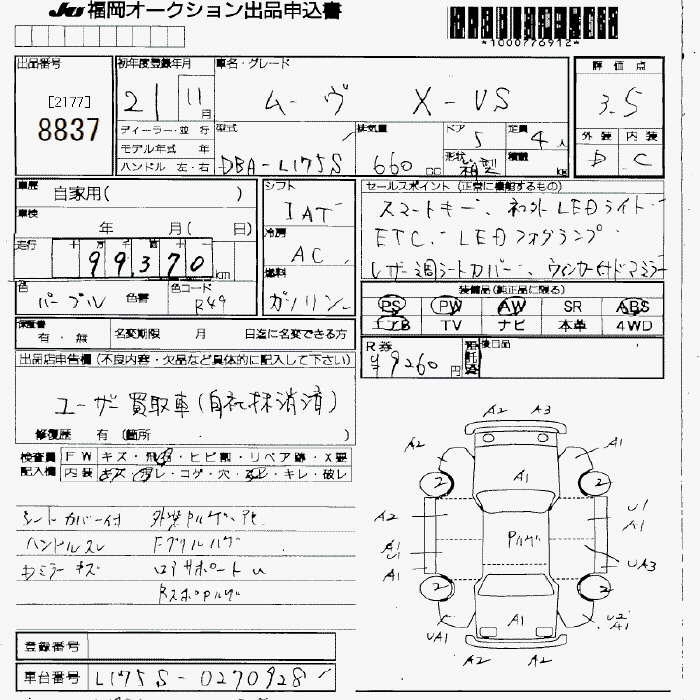 JU 福岡オークション出品申込書
*1000776912*
出品番号 初年度登録年月 車名・グレード 評価点
[2177]
8837
21 11月 ムーヴ X-VS 3.5
ディーラー・並行 型式 排気量 ドア 定員 外装 内装
モデル年式 年 5 4人 D C
ハンドル 左・右 DBA-L175S 660cc 形状 箱型 積載 kg
車歴 自家用( ) シフト セールスポイント (正常に機能するもの)
IAT スマートキー、 LEDライト
車検 年 月( 日) 冷房 ETC、LEDフォグランプ
走行 十 万 千 百 十 AC レザー調シートカバー、ウィンカー付ドアミラー
99,370km 燃料
色 パープル 色番 色コード R49 ガソリン
装備品 (純正品に限る)
PS PW AW SR ABS
エアB TV ナビ 本革 4WD
保証書 有・無 名変期限 月 日迄に名変できる方
R券 ¥9260円 後日品
出品店申告欄 (不良内容・欠品など具体的に記入して下さい)
ユーザー買取車(自社抹消済)
修復歴 有 (箇所 )
検査員 FW キズ・飛石・ヒビ割・リペア跡・X要
記入欄 内装 キズ・汚レ・コゲ・穴・スレ・キレ・破レ
シートカバー付
ハンドルスレ
ドミラーキズ ロアサポートU
A2 A3
A2 A1
A1
2 2
A2 U1 A1
A1 U1
A1 UA3
2 2
UA1 A1 U2 A1
A2 A2
登録番号
車台番号 L175S-0270928